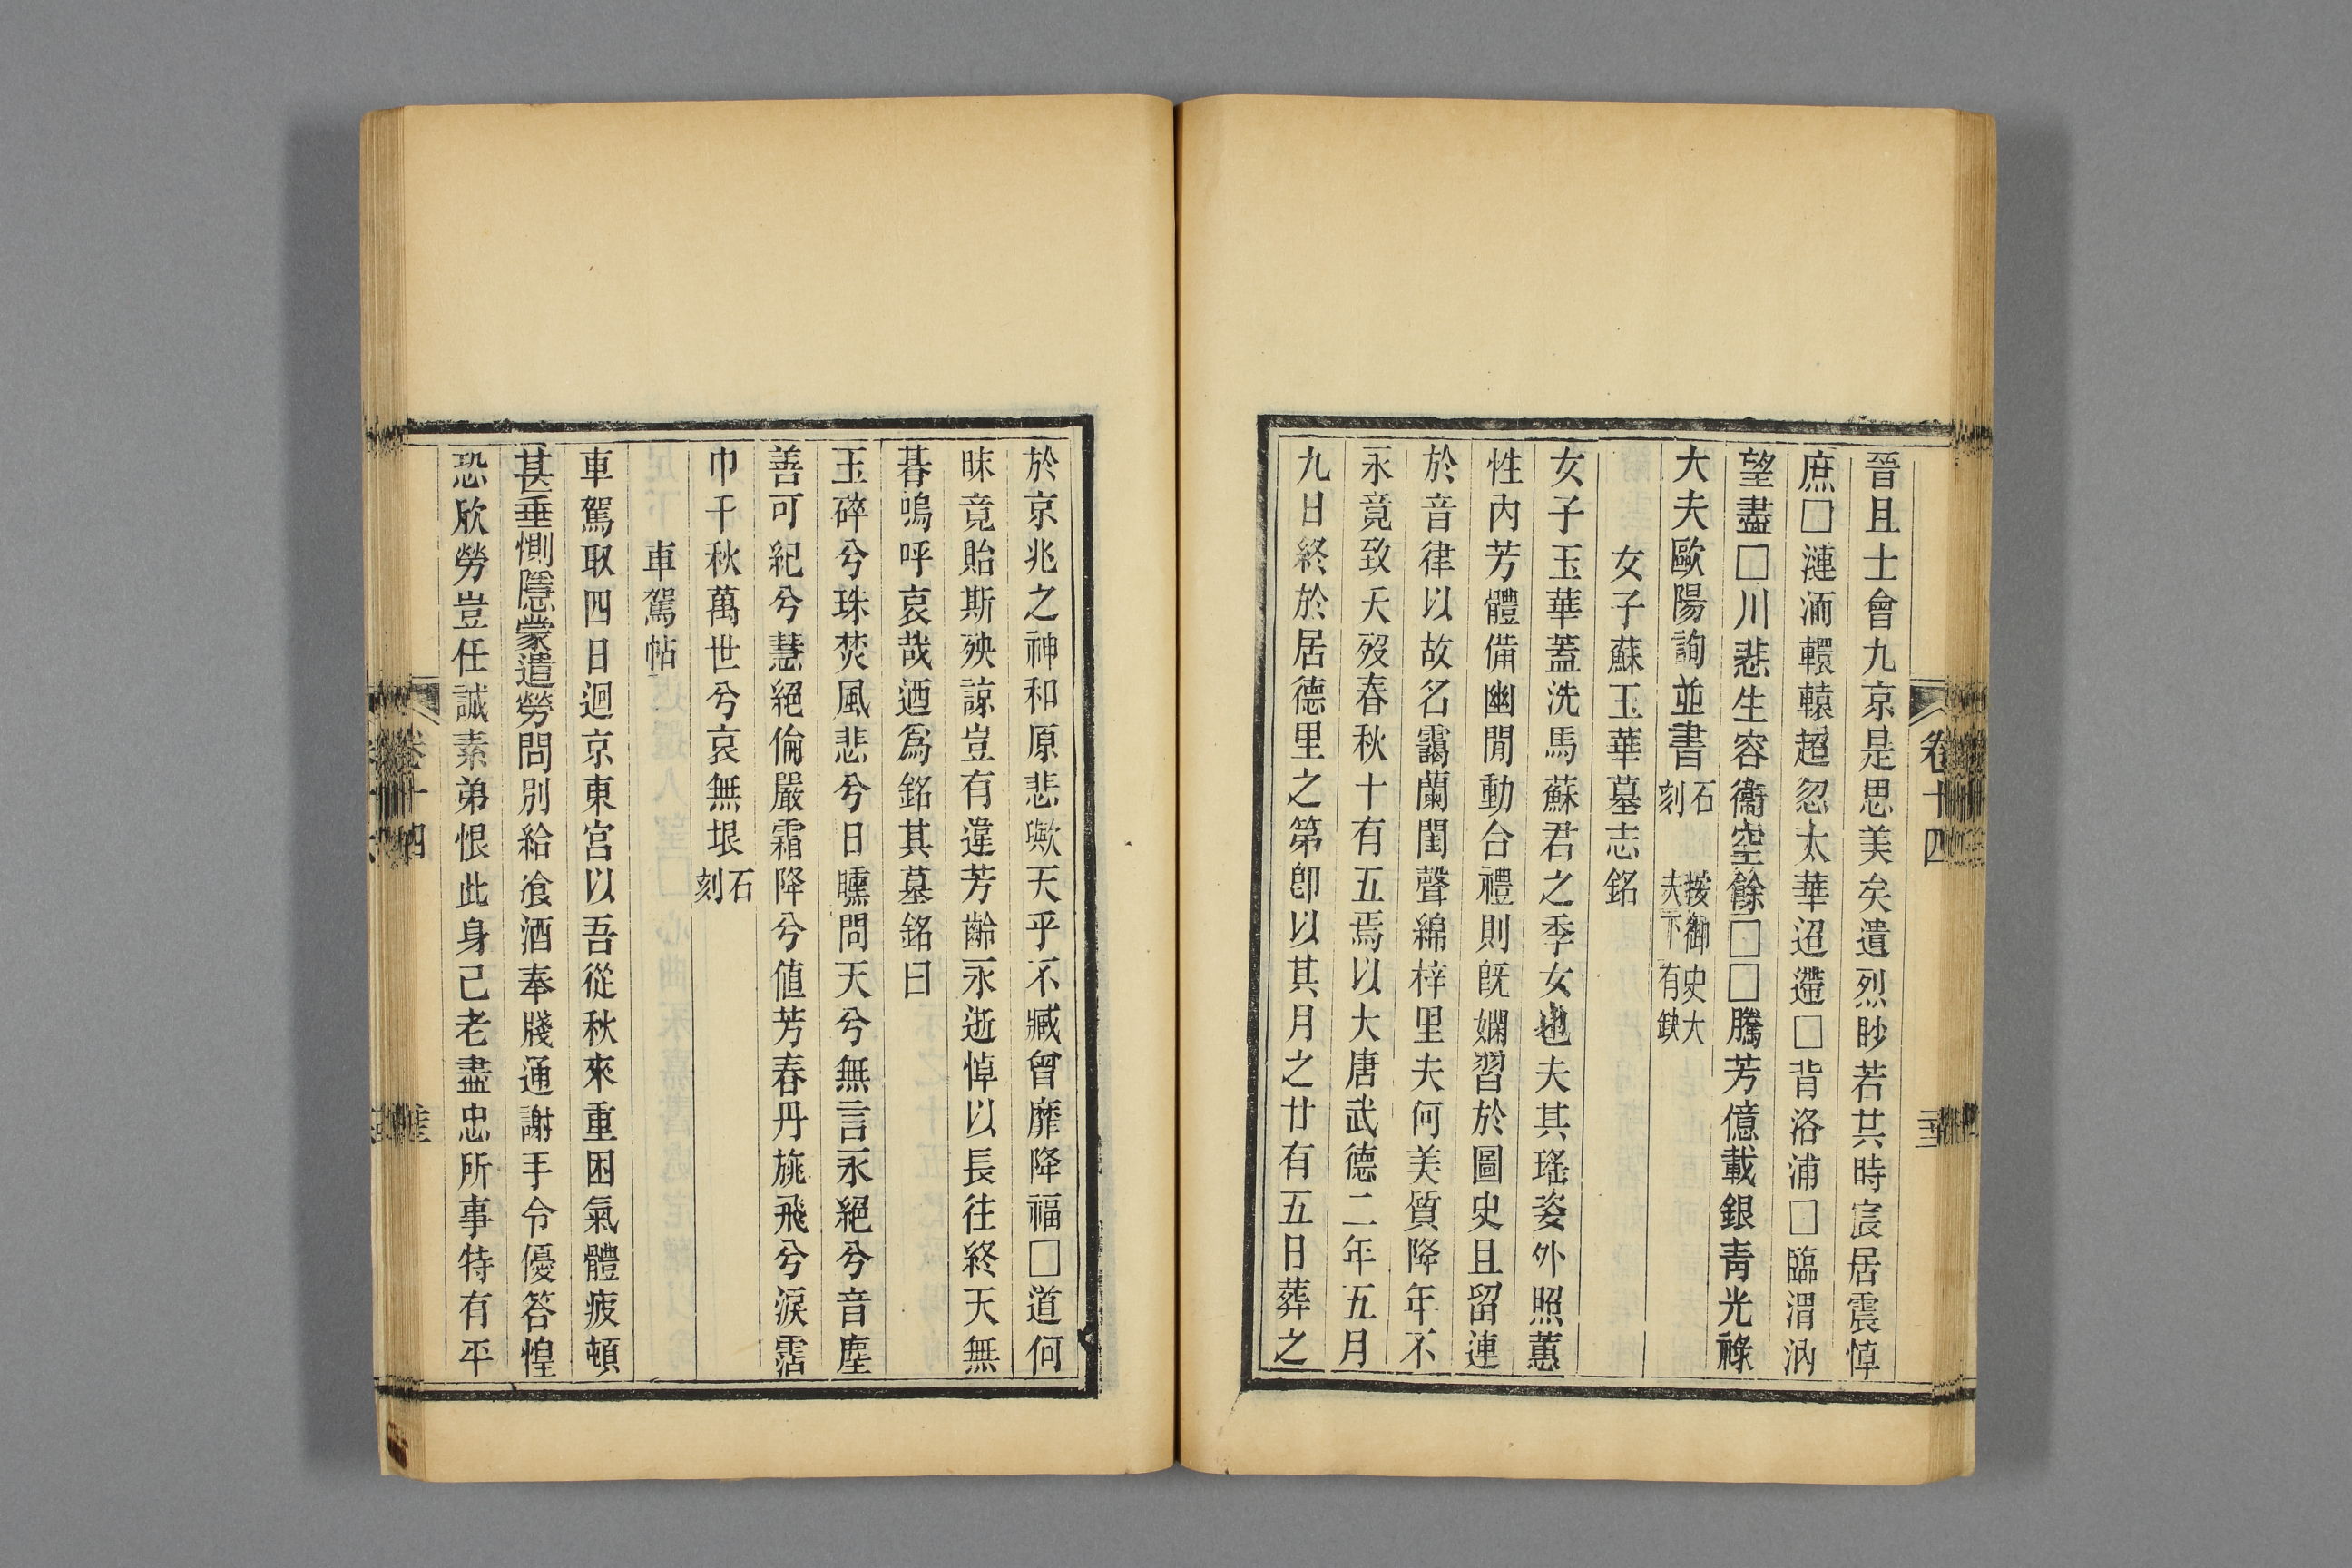 晉且士會九京是思美矣遺烈眇若其時宸居震悼
庶□漣洏轘轅超忽太華迢遰□背洛浦□臨渭汭
望盡□川悲生容衞空餘□□騰芳億載銀青光祿
大夫歐陽詢並書石刻 按御史大夫下有缺
女子蘇玉華墓志銘
女子玉華蓋洗馬蘇君之季女也夫其瑤姿外照蕙
性內芳體備幽閒動合禮則旣嫻習於圖史且留連
於音律以故名靄蘭閨聲綿梓里夫何美質降年不
永竟致夭歿春秋十有五焉以大唐武德二年五月
九日終於居德里之第卽以其月之廿有五日葬之
卷十四
於京兆之神和原悲歟天乎不臧曾靡降福□道何
昧竟貽斯殃諒豈有違芳齡永逝悼以長往終天無
朞嗚呼哀哉迺爲銘其墓銘曰
玉碎兮珠焚風悲兮日曛問天兮無言永絕兮音塵
善可紀兮慧絕倫嚴霜降兮値芳春丹旐飛兮淚霑
巾千秋萬世兮哀無垠石刻
車駕帖
車駕取四日迴京東宮以吾從秋來重困氣體疲頓
甚垂惻隱蒙遣勞問別給飡酒奉牋通謝手令優答惶
恐欣勞豈任誠素弟恨此身已老盡忠所事特有平
卷十四